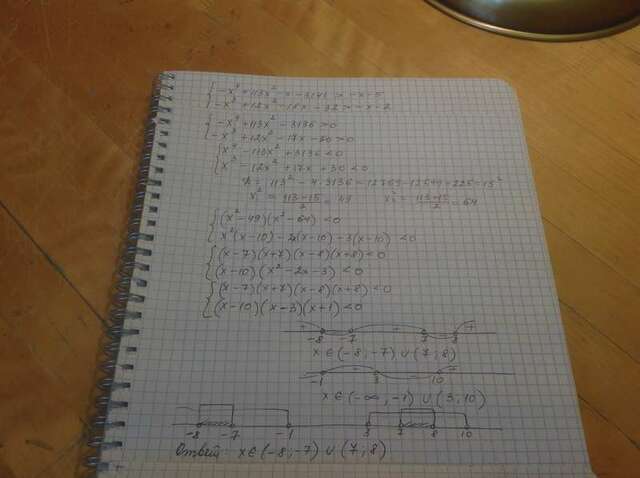 {-x⁴+113x²-x-3141>-x-5
{-x³+12x²-18x-32>-x-2
{-x⁴+113x²-3136>0
{-x³+12x²-17x-30>0
{x⁴-113x²+3136<0
{x³-12x²+17x+30<0
D=113²-4·3136=12769-12544=225=15²
x²=(113-15)/2=49 x²=(113+15)/2=64
{(x²-49)(x²-64)<0
{x²(x-10)-2x(x-10)-3(x-10)<0
{(x-7)(x+7)(x-8)(x+8)<0
{(x-10)(x²-2x-3)<0
{(x-7)(x+7)(x-8)(x+8)<0
{(x-10)(x-3)(x+1)<0
+ - + - +
-8 -7 7 8
x∈(-8;-7)∪(7;8)
- + - +
-1 3 10
x∈(-∞;-1)∪(3;10)
-8 -7 -1 3 7 8 10
Ответ: x∈(-8;-7)∪(7;8)